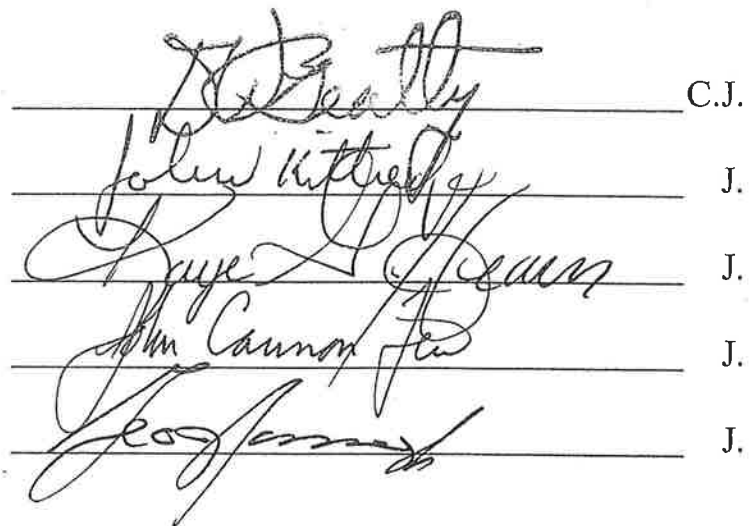 Beatty C.J.
John Kittredge J.
Kaye G. Hearn J.
John Cannon Few J.
Geo J.